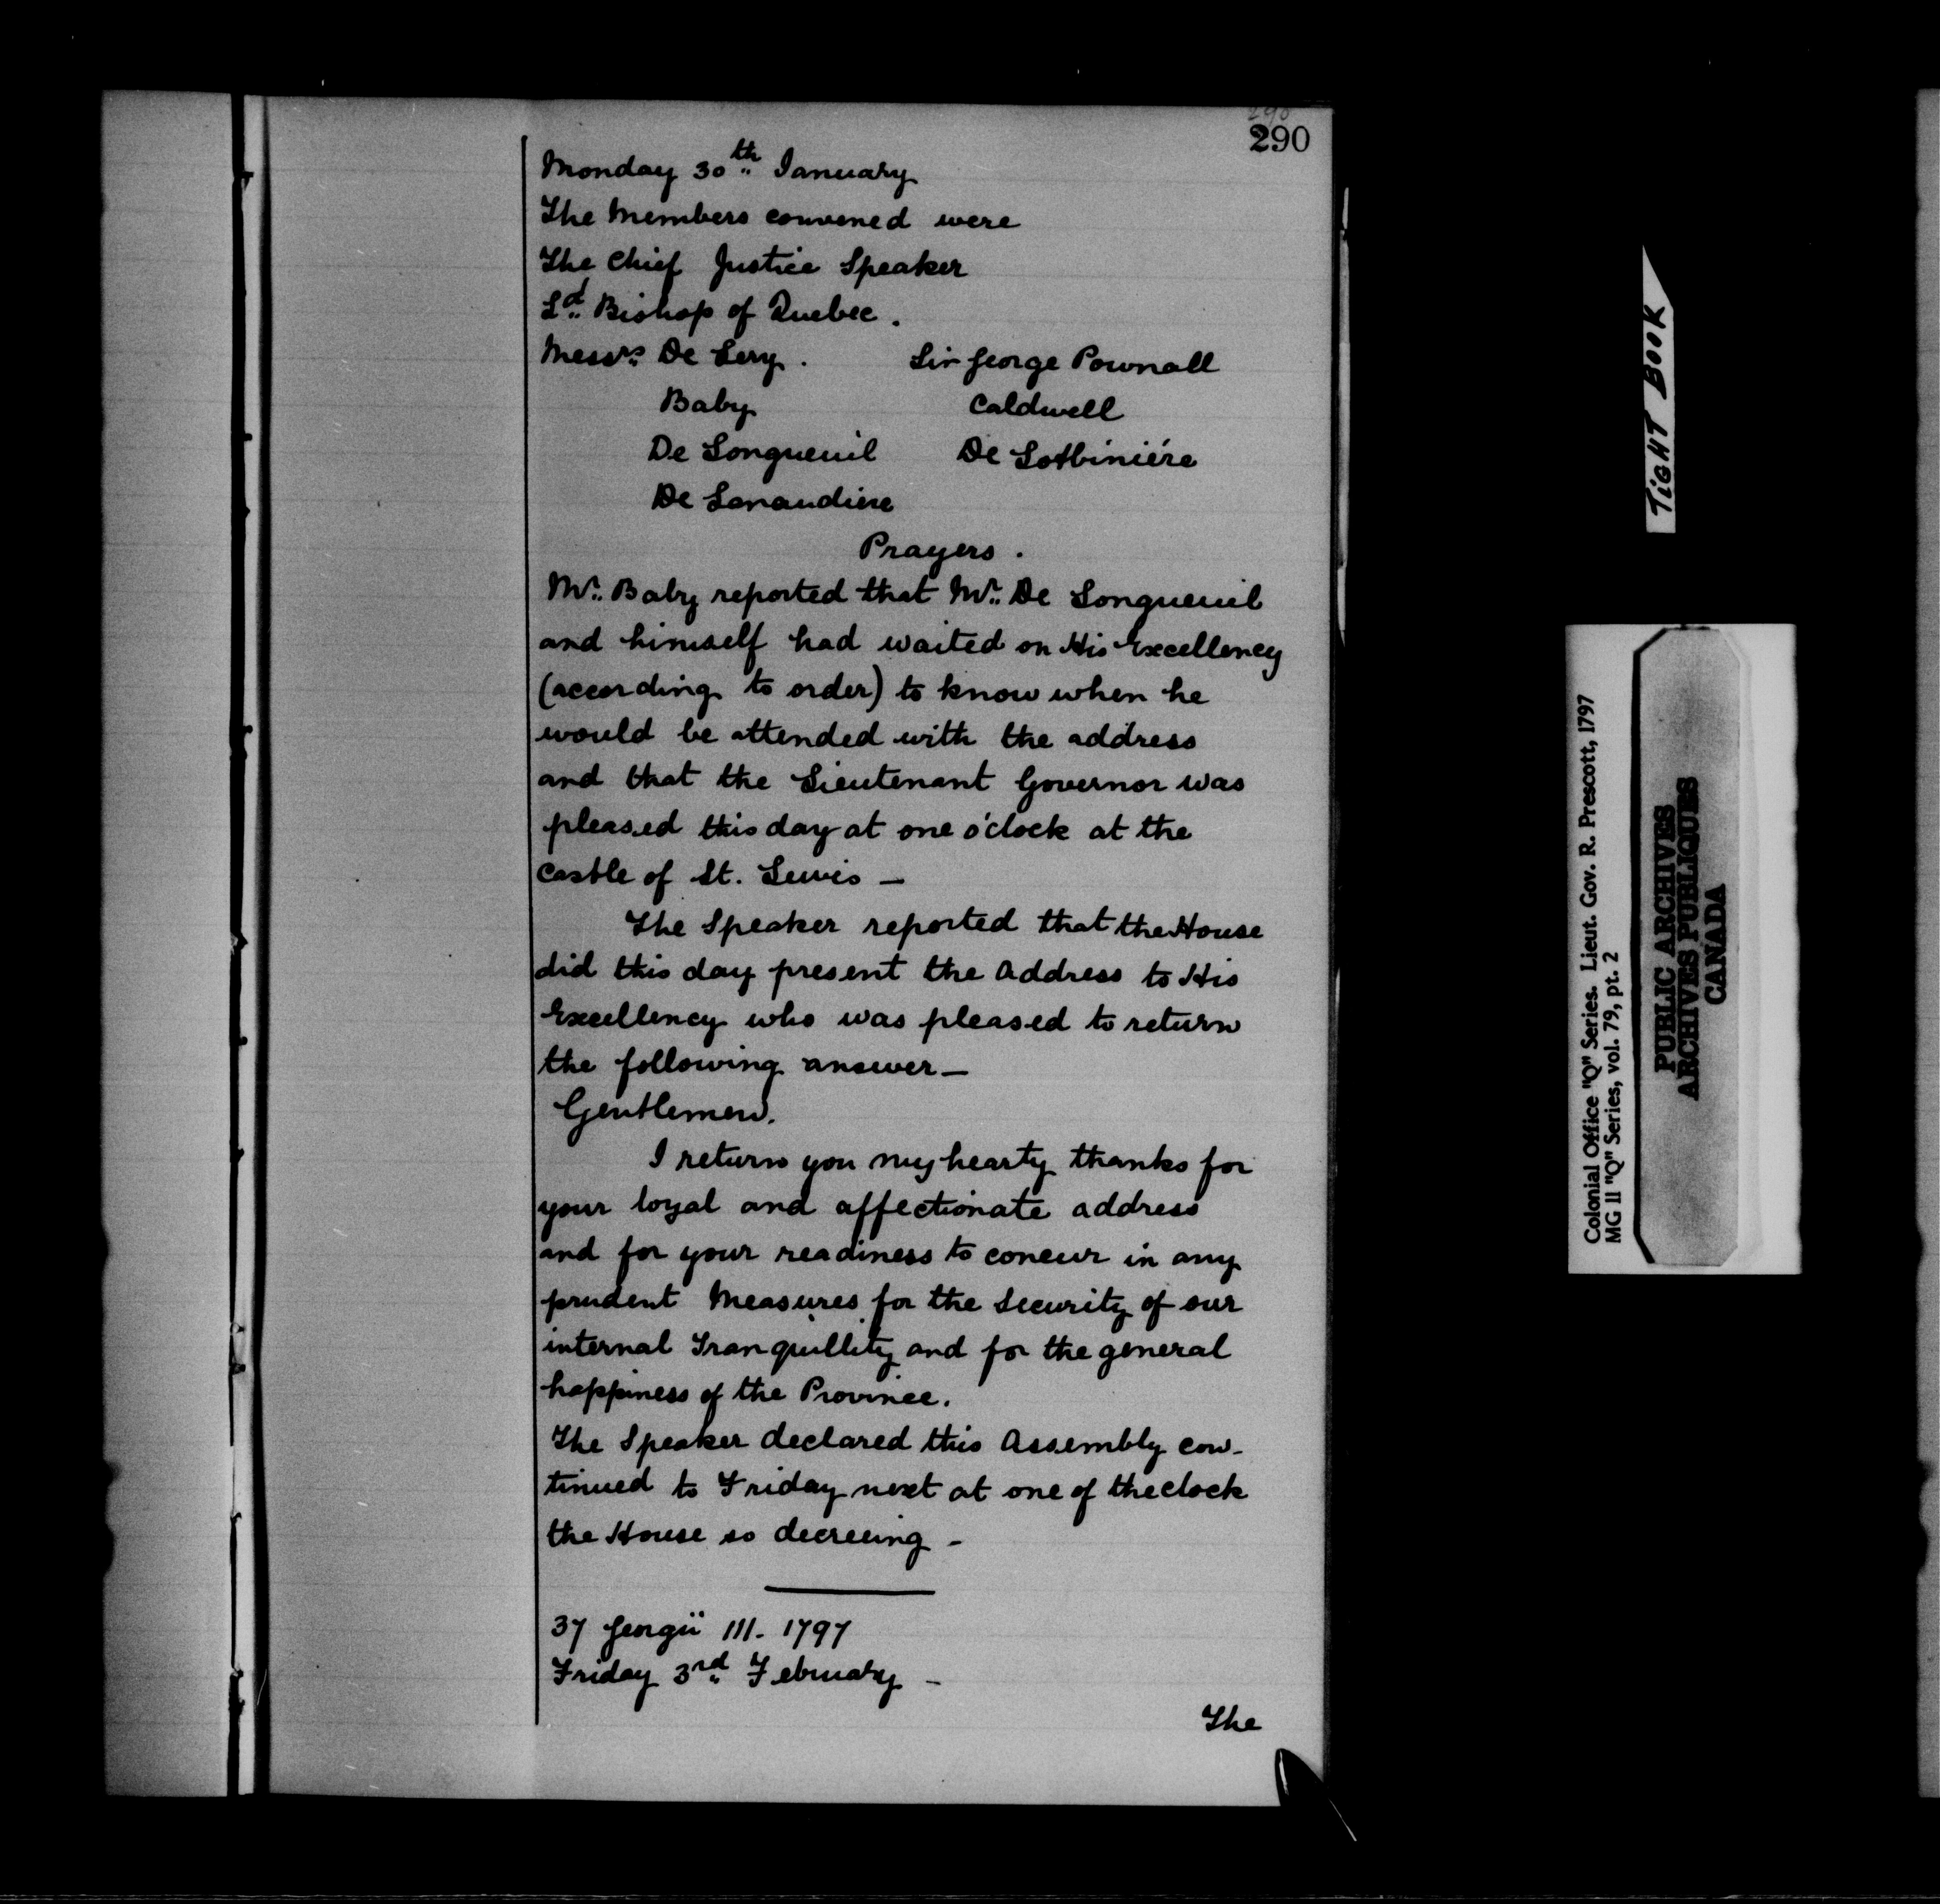 290
290
Monday 30th January
The Members convened were
The Chief Justice Speaker
Ld. Bishop of Quebec.
Messrs. De Lery. Sir George Pownall
Baby Caldwell
De Longueuil De Lotbiniére
De Lanaudiere
Prayers.
Mr. Baby reported that Mr. De Longueuil
and himself had waited on His Excellency
(according to order) to know when he
would be attended with the address
and that the Lieutenant Governor was
pleased this day at one o'clock at the
Castle of St. Lewis —
The Speaker reported that the House
did this day present the Address to His
Excellency who was pleased to return
the following answer —
Gentlemen.
I return you my hearty thanks for
your loyal and affectionate address
and for your readiness to concur in any
prudent Measures for the Security of our
internal Tranquillity and for the general
happiness of the Province.
The Speaker declared this Assembly con-
tinued to Friday next at one of the clock
the House so decreeing -
37 Georgii III. 1797
Friday 3rd February -
The
TIGHT BOOK
Colonial Office "Q" Series. Lieut. Gov. R. Prescott, 1797
MG 11 "Q" Series, vol. 79, pt. 2
PUBLIC ARCHIVES
ARCHIVES PUBLIQUES
CANADA